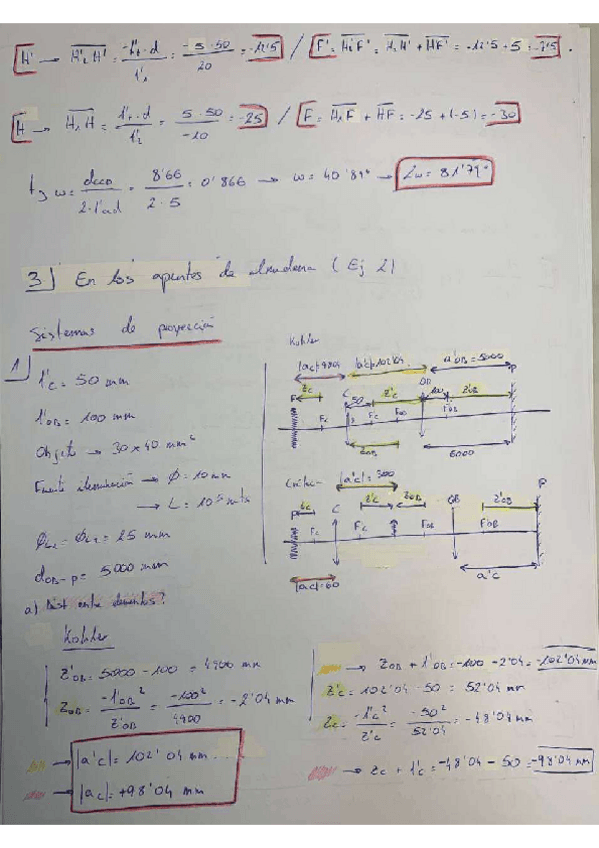 H' → H'₂H' = -f'₂·d / f'₁ = -5·50 / 20 = -12'5 / F' = H'₂F' = H'₂H' + H'F' = -12'5 + 5 = -7'5.
H → H₁H = f'₁·d / f'₂ = 5·50 / -10 = -25 / F = H₁F = H₁H + HF = -25 + (-5) = -30
tg ω = / 2·f'ad = 8'66 / 2·5 = 0'866 → ω = 40'89° → 2ω = 81'79°
3) En los apuntes de almudena (Ej 2)
Sistemas de proyección
1)
f'c = 50 mm
f'OB = 100 mm
Objeto → 30 x 40 mm²
Fuente iluminación → Ø = 10 mm
→ L = 10⁵ nits
= 25 mm
dOB-P = 5000 mm
a) Dist entre elementos?
Kohler
|ac| = 98'04 |a'c| = 102'04 a'OB = 5000
zc C z'c OB 100 z'OB P
F Fc 50 F'c FOB F'OB
aOB 5000
Crítica |a'c| = 300
zc C z'c zOB OB z'OB P
Fc F'c FOB F'OB
|ac| = 60 a'c
Kohler
z'OB = 5000 - 100 = 4900 mm
zOB = -f'OB² / z'OB = -100² / 4900 = -2'04 mm
→ |a'c| = 102'04 mm
→ |ac| = +98'04 mm
→ zOB + f'OB = -100 - 2'04 = -102'04 mm
z'c = 102'04 - 50 = 52'04 mm
zc = -f'c² / z'c = -50² / 52'04 = -48'04 mm
→ zc + f'c = -48'04 - 50 = -98'04 mm